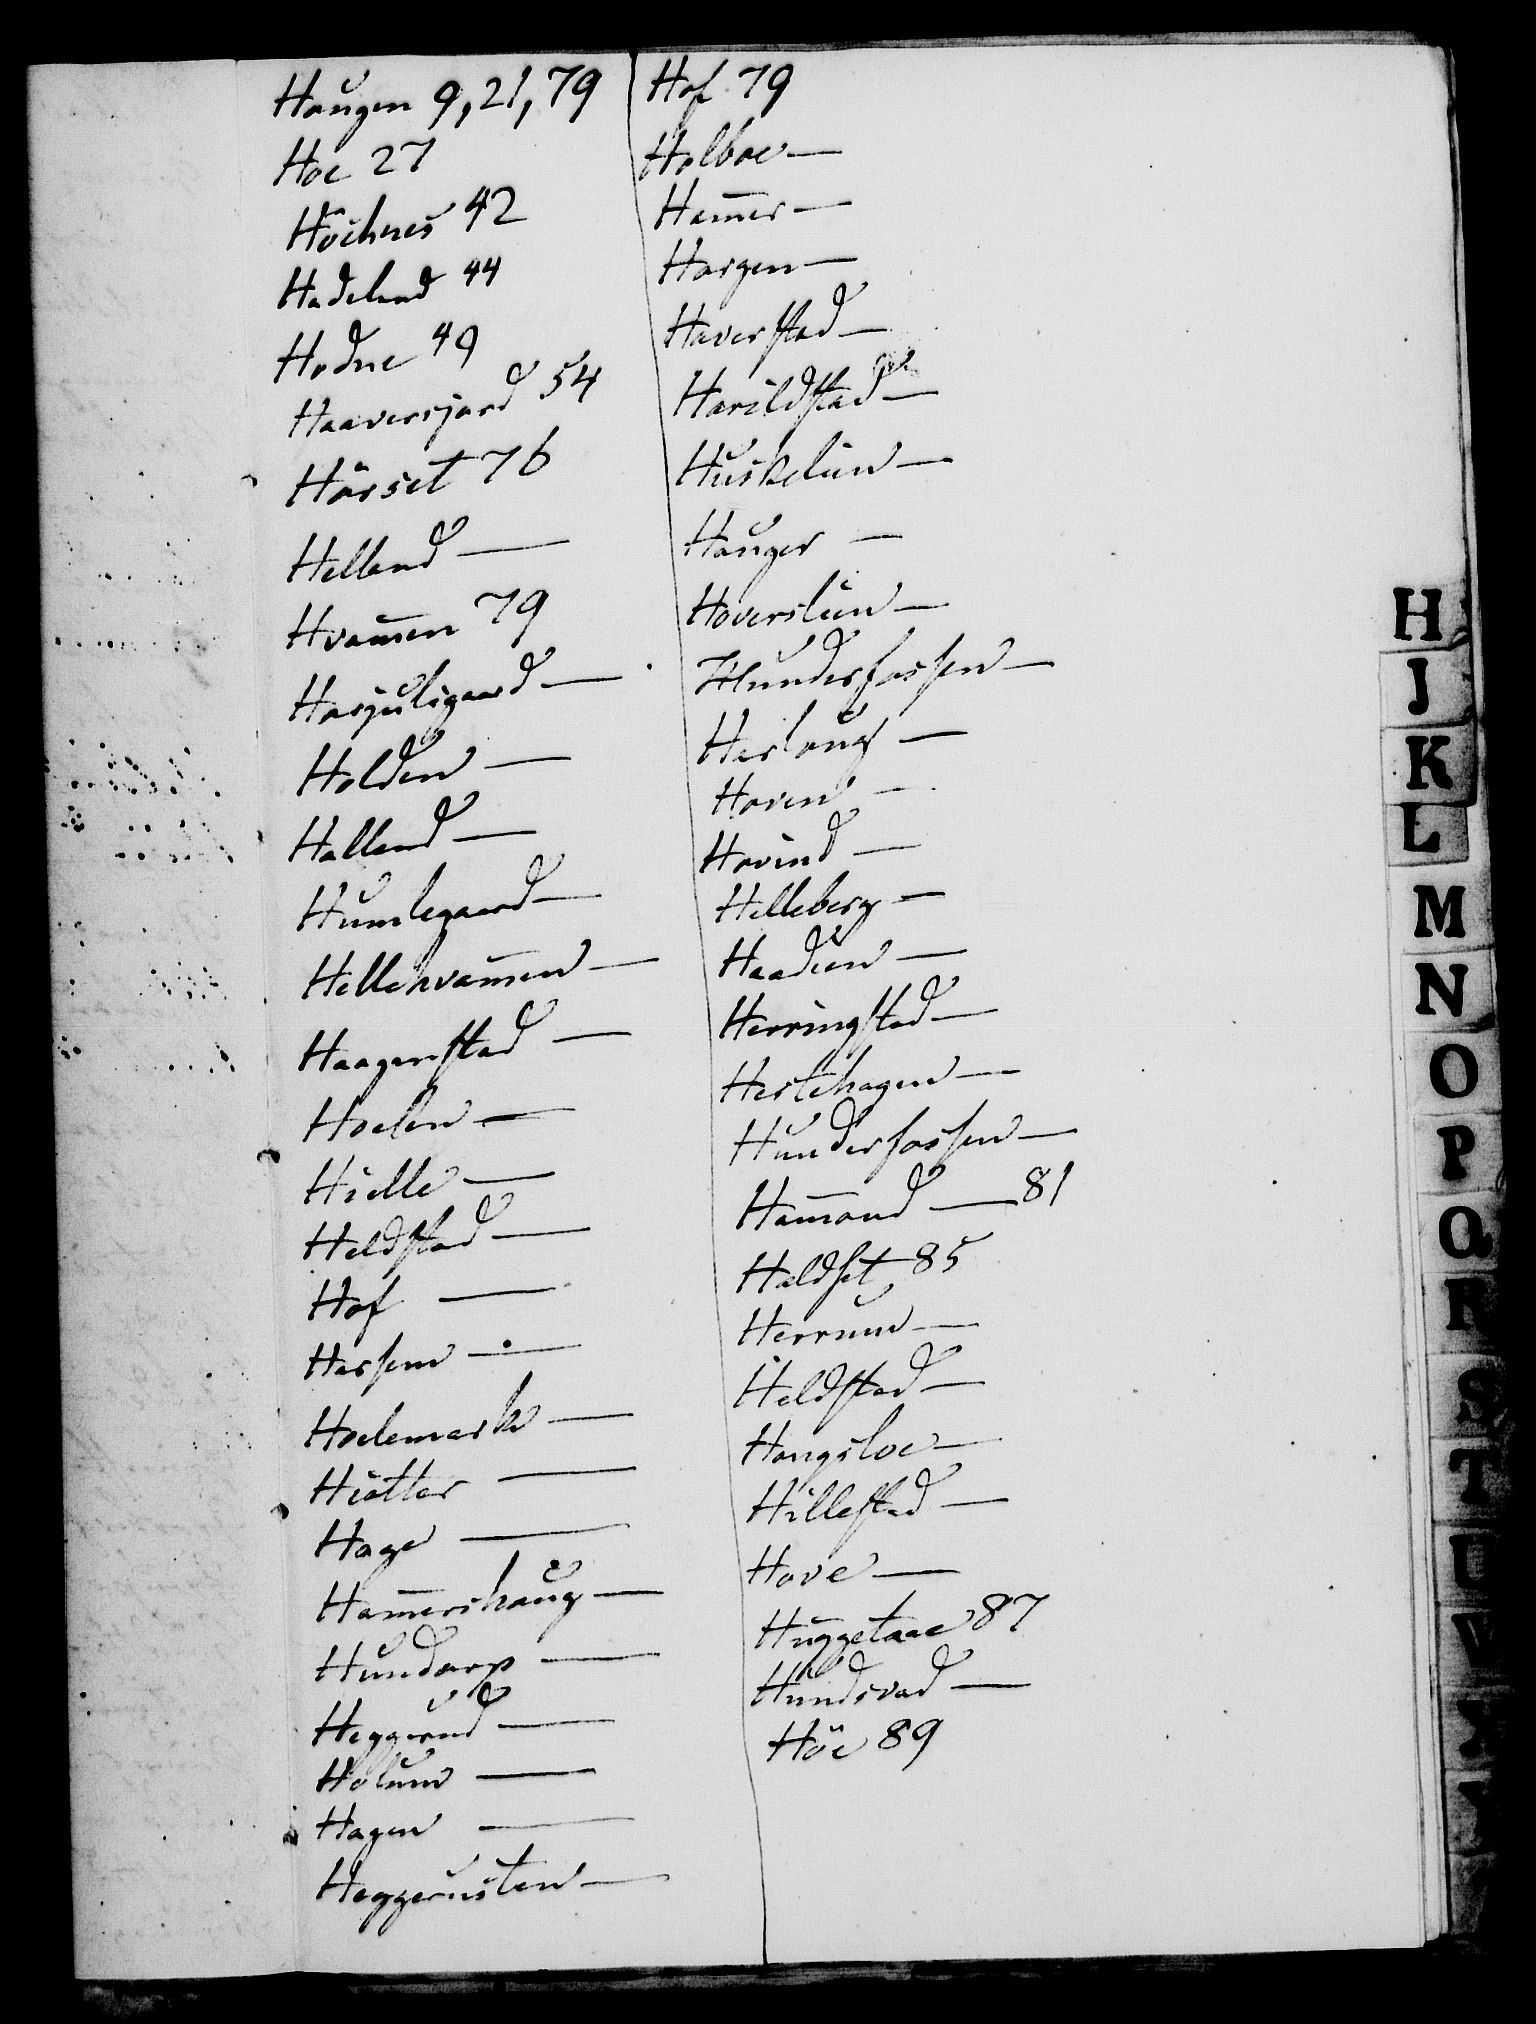 Haugen 9, 21, 79
Hoe 27
Höchnes 42
Hadeland 44
Hodne 49
Haaversjord 54
Hörset 76
Helland —
Hvam̄en 79
Harjuligaard —
Holden —
Halland —
Humlegaard —
Hellehvam̄en —
Haagenstad —
Hoelen —
Hielle —
Heldstad —
Hof —
Harsem —
Hoelemark —
Hiotter —
Hage —
Ham̄ershaug —
Hundorp —
Heggerud —
Holum —
Hagen —
Heggerusten —
Hof 79
Holboe —
Ham̄er —
Horgen —
Haverstad —
Harildstad —
Huskelien —
Hauger —
Hoverslien —
Hunderfossen —
Herlaug —
Hoven —
Hovind —
Helleberg —
Haadien —
Herringstad —
Hestehagen —
Hunderfossen —
Ham̄ond — 81
Haldset 85
Herrum —
Heldstad —
Hongsloe —
Hillestad —
Hove —
Huggetaae 87
Hundsvad —
Höe 89
H
J
K
L
M
N
O
P
Q
R
S
T
U